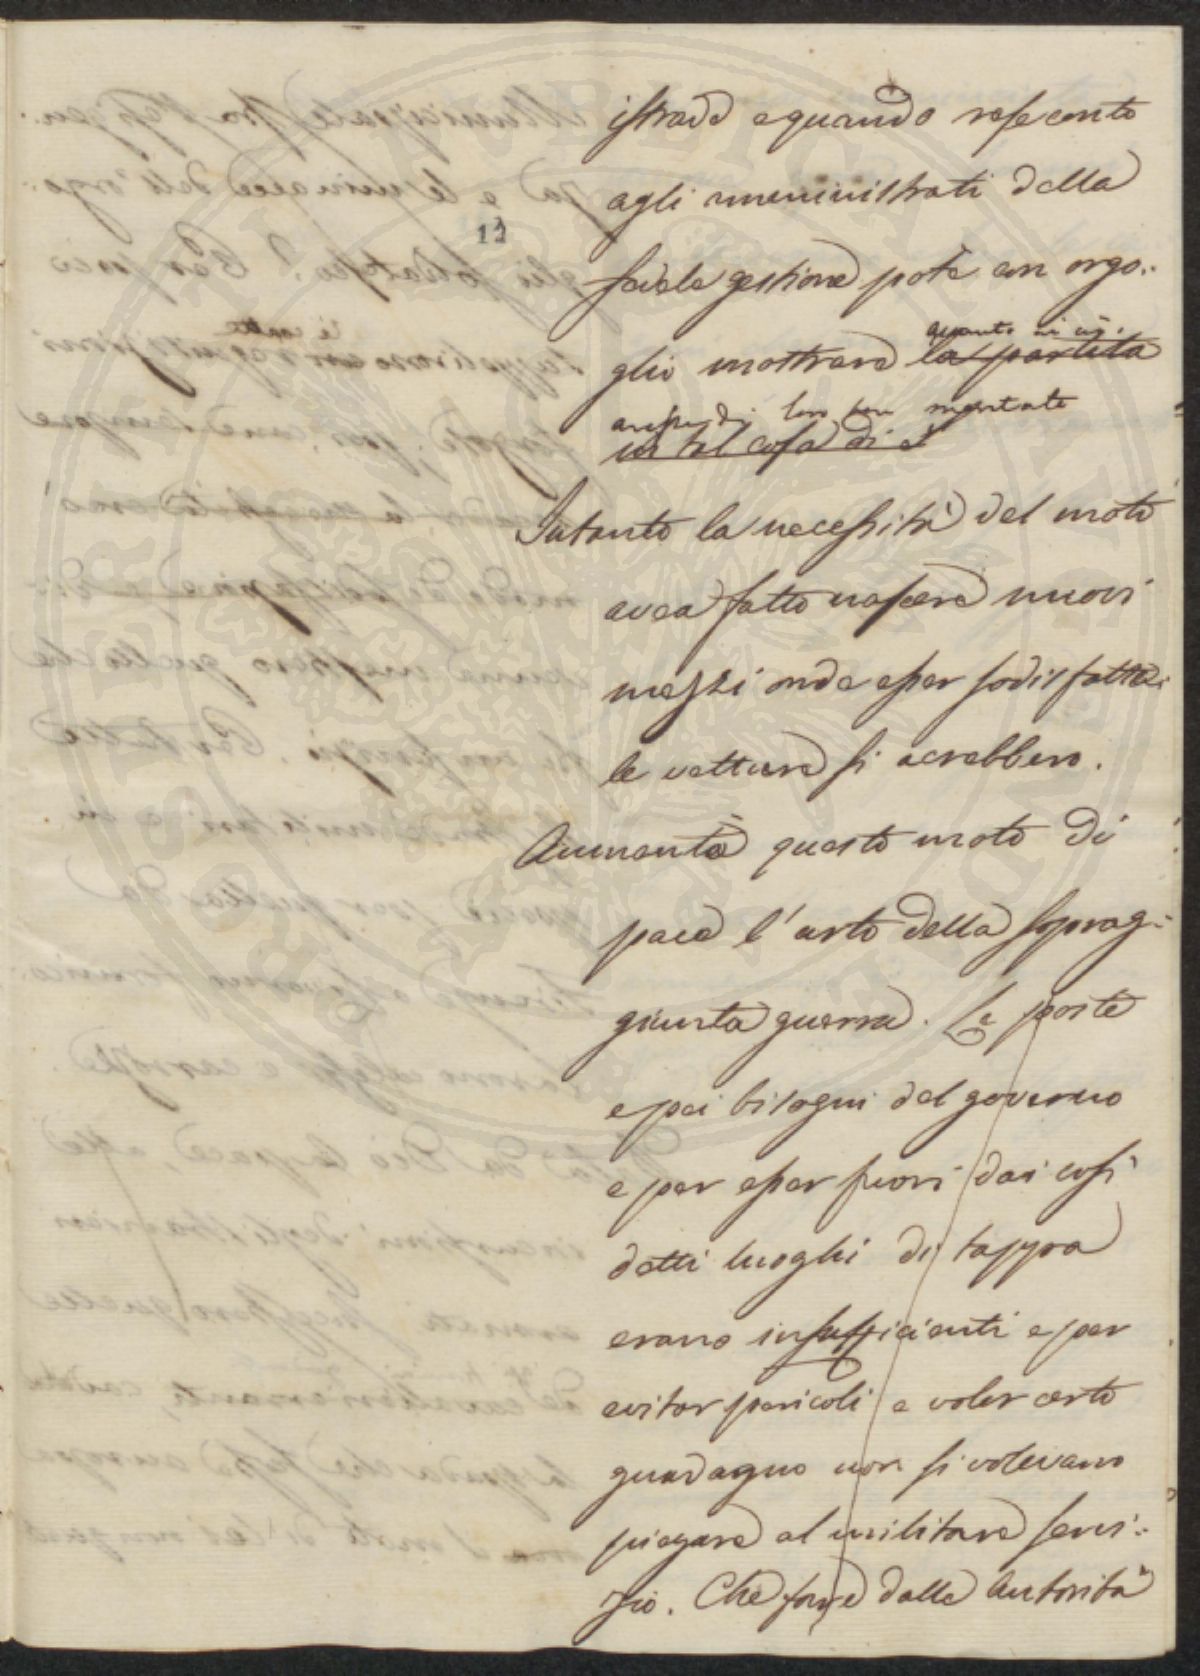 12
istrade e quando rese conto
agli amministrati della
fedele gestione potè con orgo:
glio mostrare quanto
la partita
ben meritato
in tal cosa di
Intanto la necessità del moto
avea fatto nascere nuovi
mezzi onde esser sodisfatta:
le vetture si acrebbero.
Aumentò questo moto di
pace l'urto della soprag:
giunta guerra. Le poste
e pei bisogni del governo
e per esser fuori dai così
detti luoghi di tappa
erano insufficienti e per
evitar pericoli e voler certo
guadagno non si volevano
piegare al militare servi:
zio. Che fare dalle Autorità